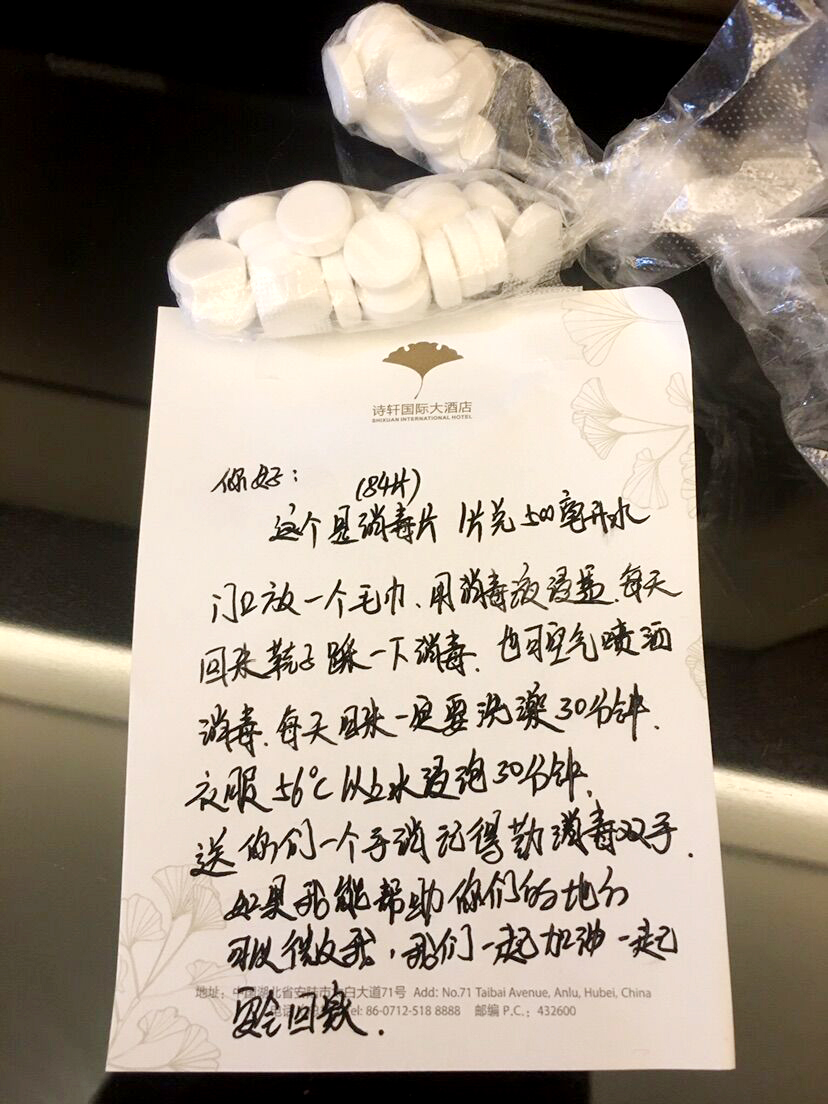 诗轩国际大酒店
SHIXUAN INTERNATIONAL HOTEL
你好：
(84片)
这个是消毒片 1片兑500毫升水
门口放一个毛巾、用消毒液浸湿、每天
回来鞋子踩一下消毒、也可空气喷洒
消毒、每天回来一定要洗澡30分钟、
衣服56℃以上水浸泡30分钟、
送你们一个手消记得勤消毒双手.
如果我能帮助你们的地方
可以微我，我们一起加油一起
地址：中国湖北省安陆市太白大道71号 Add: No.71 Taibai Avenue, Anlu, Hubei, China
el: 86-0712-518 8888 邮编 P.C.：432600